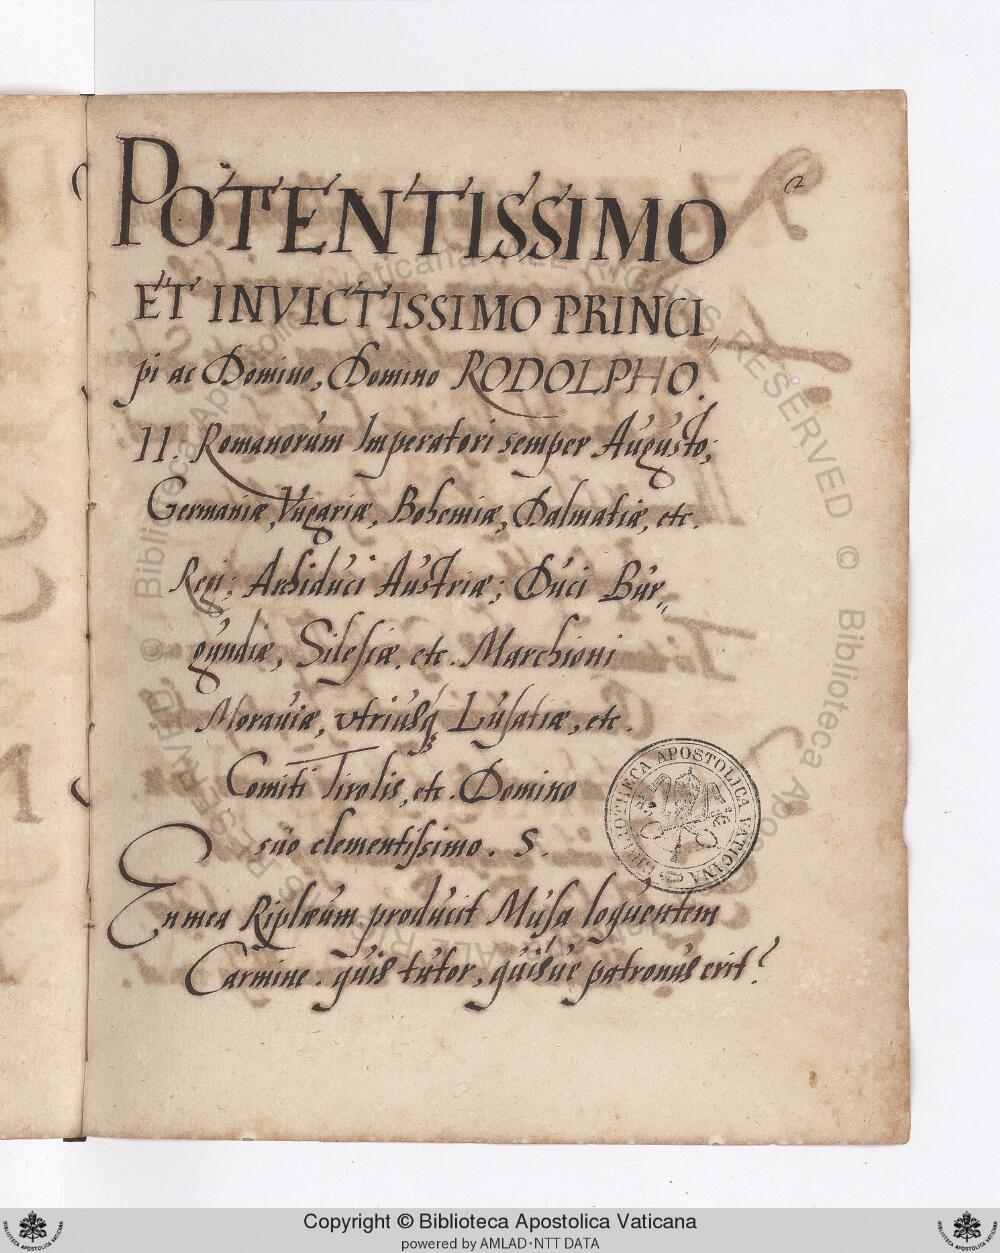 2
POTENTISSIMO
ET INVICTISSIMO PRINCI„
pi ac Domino, Domino RODOLPHO.
II. Romanorum Imperatori semper Augusto;
Germaniæ, Vngariæ, Bohemiæ, Dalmatiæ, etc.
Regi; Archiduci Austriæ; Duci Bur„
gundiæ, Silesiæ, etc. Marchioni
Morauiæ, vtriusq Lusatiæ, etc.
Comiti Tirolis, etc. Domino
suo clementissimo. S.
En mea Riplæum producit Musa loquentem
Carmine. quis tutor, quisue patronus erit?
BIBLIOTHECA APOSTOLICA VATICANA
Copyright © Biblioteca Apostolica Vaticana
powered by AMLAD·NTT DATA